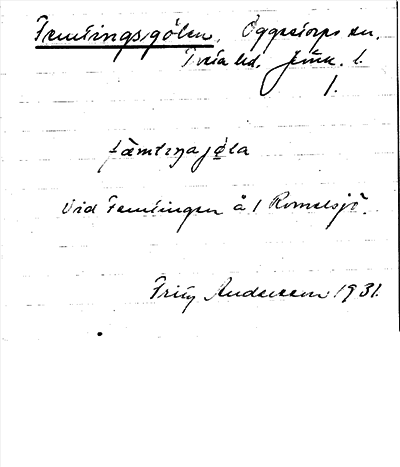 Femtingsgölen, Öggestorps sn.
Tveta hd. Jönk. l.
1.
fämtiŋajøla
Vid Femtingen å 1 Romelsjö.
Fritz Andersson 1931.